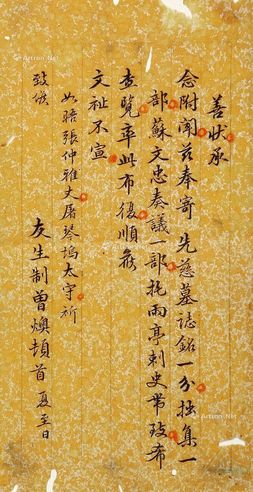 善狀承
念附聞茲奉寄 先慈墓誌銘一分拙集一
部蘇文忠奏議一部托雨亭刺史帶致希
查覽率此布復順候
文祉不宣
如晤張仲雅丈屠琴塢太守祈
致候
友生制曾燠頓首 夏至日
Artron.Net